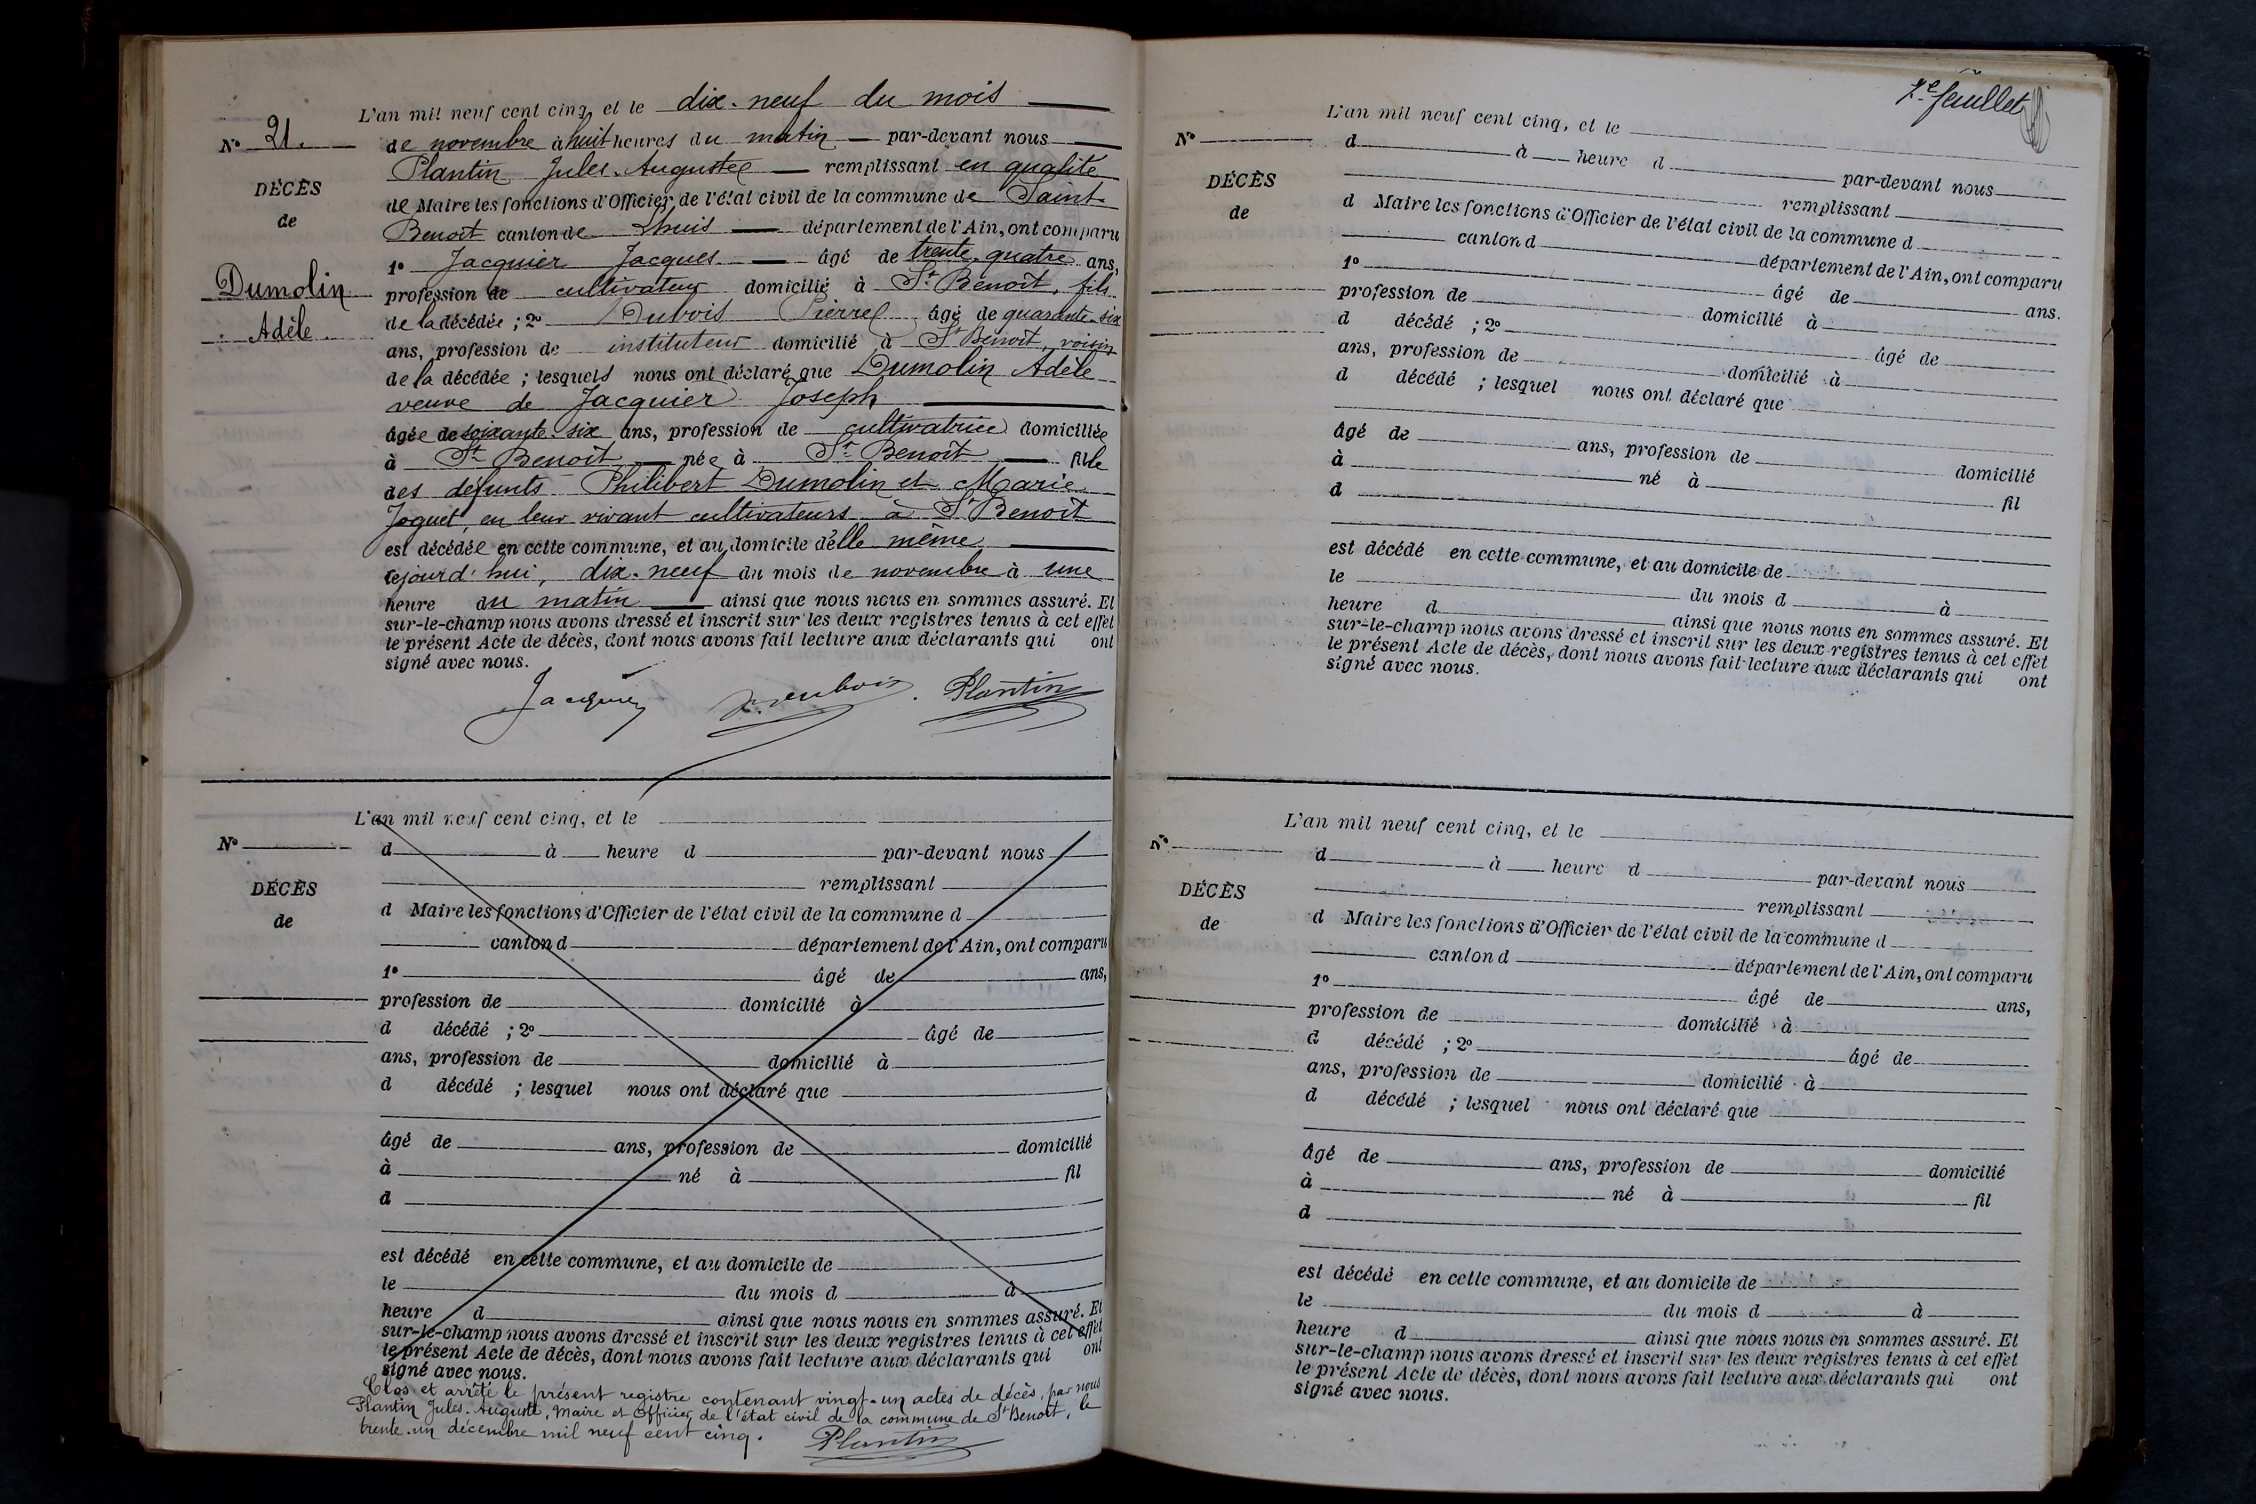 L'an mil neuf cent cinq, et le dix-neuf du mois
N° 21.
de novembre à huit heures du matin par-devant nous
Plantin Jules-Auguste remplissant en qualité
DÉCÈS
de Maire les fonctions d'Officier de l'état civil de la commune de Saint-
de
Benoît canton de Lhuis département de l'Ain, ont comparu
1° Jacquier Jacques âgé de trente-quatre ans,
Dumolin
profession de cultivateur domicilié à St Benoît, fils
Adèle
de la décédée ; 2° Dubois Pierre âgé de quarante-six
ans, profession de instituteur domicilié à St Benoît, voisin
de la décédée ; lesquels nous ont déclaré que Dumolin Adèle
veuve de Jacquier Joseph
âgée de soixante-six ans, profession de cultivatrice domiciliée
à St Benoît née à St Benoît fille
des défunts Philibert Dumolin et Marie
Joguet, en leur vivant cultivateurs à St Benoît
est décédée en cette commune, et au domicile d'elle même
cejourd'hui, dix-neuf du mois de novembre à une
heure du matin ainsi que nous nous en sommes assuré. Et
sur-le-champ nous avons dressé et inscrit sur les deux registres tenus à cet effet
le présent Acte de décès, dont nous avons fait lecture aux déclarants qui ont
signé avec nous.
Jacquier Dubois Plantin
L'an mil neuf cent cinq, et le
N°
d à heure d par-devant nous
remplissant
DÉCÈS
d Maire les fonctions d'Officier de l'état civil de la commune d
de
canton d département de l'Ain, ont comparu
1° âgé de ans,
profession de domicilié à
d décédé ; 2° âgé de
ans, profession de domicilié à
d décédé ; lesquel nous ont déclaré que
âgé de ans, profession de domicilié
à né à fil
d
est décédé en cette commune, et au domicile de
le du mois d à
heure d ainsi que nous nous en sommes assuré. Et
sur-le-champ nous avons dressé et inscrit sur les deux registres tenus à cet effet
le présent Acte de décès, dont nous avons fait lecture aux déclarants qui ont
signé avec nous.
Clos et arrêté le présent registre contenant vingt-un actes de décès, par nous
Plantin Jules-Auguste, Maire et Officier de l'état civil de la commune de St Benoît, le
trente-un décembre mil neuf cent cinq. Plantin
feuillet
L'an mil neuf cent cinq, et le
N°
d à heure d par-devant nous
remplissant
DÉCÈS
d Maire les fonctions d'Officier de l'état civil de la commune d
de
canton d département de l'Ain, ont comparu
1° âgé de ans.
profession de domicilié à
d décédé ; 2° âgé de
ans, profession de domicilié à
d décédé ; lesquel nous ont déclaré que
âgé de ans, profession de domicilié
à né à fil
d
est décédé en cette commune, et au domicile de
le du mois d à
heure d ainsi que nous nous en sommes assuré. Et
sur-le-champ nous avons dressé et inscrit sur les deux registres tenus à cet effet
le présent Acte de décès, dont nous avons fait lecture aux déclarants qui ont
signé avec nous.
L'an mil neuf cent cinq, et le
N°
d à heure d par-devant nous
remplissant
DÉCÈS
d Maire les fonctions d'Officier de l'état civil de la commune d
de
canton d département de l'Ain, ont comparu
1° âgé de ans,
profession de domicilié à
d décédé ; 2° âgé de
ans, profession de domicilié à
d décédé ; lesquel nous ont déclaré que
âgé de ans, profession de domicilié
à né à fil
d
est décédé en cette commune, et au domicile de
le du mois d à
heure d ainsi que nous nous en sommes assuré. Et
sur-le-champ nous avons dressé et inscrit sur les deux registres tenus à cet effet
le présent Acte de décès, dont nous avons fait lecture aux déclarants qui ont
signé avec nous.